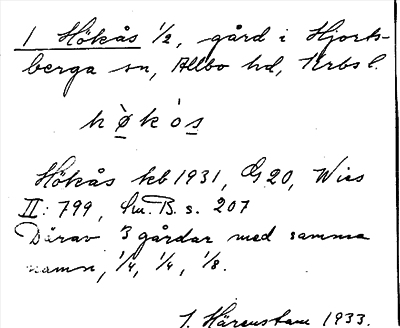 1 Hökås 1/2, gård i Hjorts-
berga sn, Allbo hd, Krbs l.
hø̀kó̀s
Hökås kb 1931, G 20, Wies
II: 799, Sm. B. s. 207
Därav 3 gårdar med samma
namn, 1/4, 1/4, 1/8.
J. Härenstam 1933.